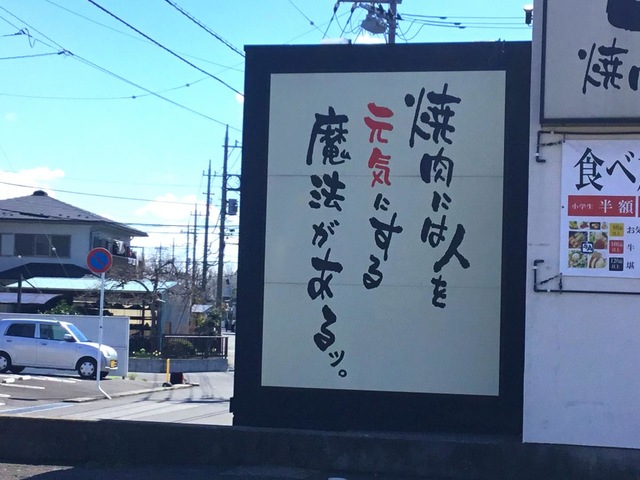 焼肉には人を
元気にする
魔法があるッ。
焼
食べ
小学生 半額
お
牛
堪